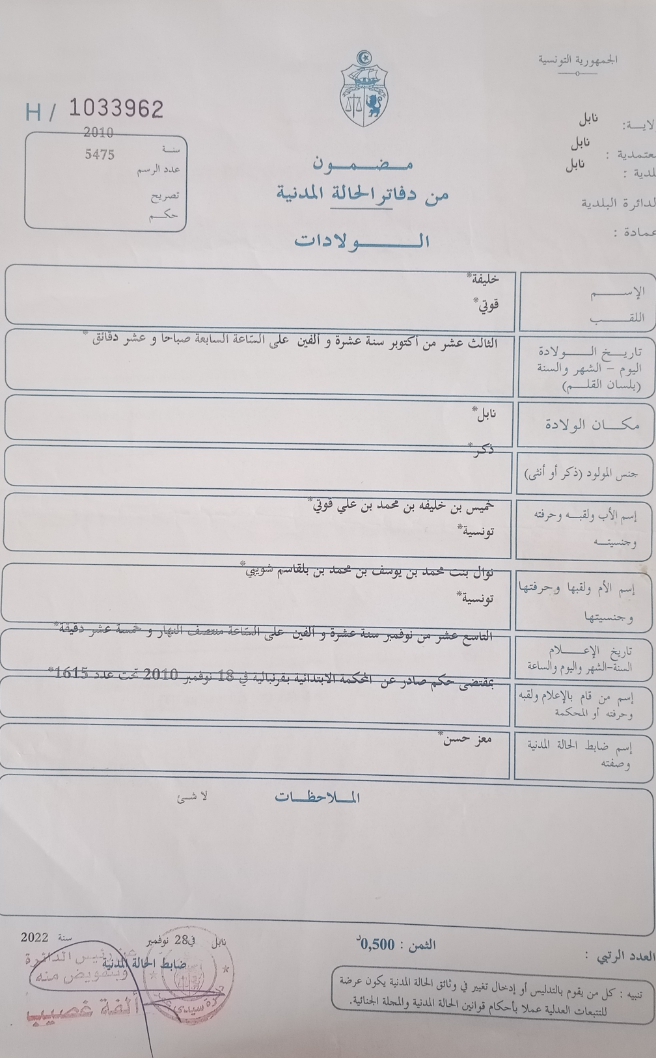 الجمهورية التونسية
H / 1033962
لاية: نابل
عتمدية : نابل
لدية : نابل
لدائرة البلدية
عمادة :
سنة 2010
عدد الرسم 5475
تصريح
حكم
مضمون
من دفاتر الحالة المدنية
الولادات
الإسم خليفة*
اللقب قوتي*
تاريخ الولادة
اليوم - الشهر والسنة
(بلسان القلم)
الثالث عشر من أكتوبر سنة عشرة و ألفين على الساعة السابعة صباحا و عشر دقائق *
مكان الولادة نابل*
جنس المولود (ذكر أو أنثى) ذكر*
إسم الأب ولقبه وحرفته
وجنسيته
خميس بن خليفه بن محمد بن علي قوتي*
تونسية*
إسم الأم ولقبها وحرفتها
وجنسيتها
نوال بنت محمد بن يوسف بن محمد بن بلقاسم شويبي*
تونسية*
تاريخ الإعلام
السنة-الشهر واليوم والساعة
التاسع عشر من نوفمبر سنة عشرة و ألفين على الساعة منتصف النهار و خمسة عشر دقيقة*
إسم من قام بالإعلام ولقبه
وحرفته أو المحكمة
بمقتضى حكم صادر عن المحكمة الابتدائية بقرنبالية في 18 نوفمبر 2010 تحت عدد 1615*
إسم ضابط الحالة المدنية
وصفته
معز حسن*
الملاحظات
لا شئ
نابل في 28 نوفمبر سنة 2022
ضابط الحالة المدنية
عن رئيس الدائرة
وبتفويض منه
ألفة غصيب
الثمن : 0,500د
العدد الرتبي :
تنبيه : كل من يقوم بالتدليس أو إدخال تغيير في وثائق الحالة المدنية يكون عرضة
للتتبعات العدلية عملا بأحكام قوانين الحالة المدنية والمجلة الجنائية.